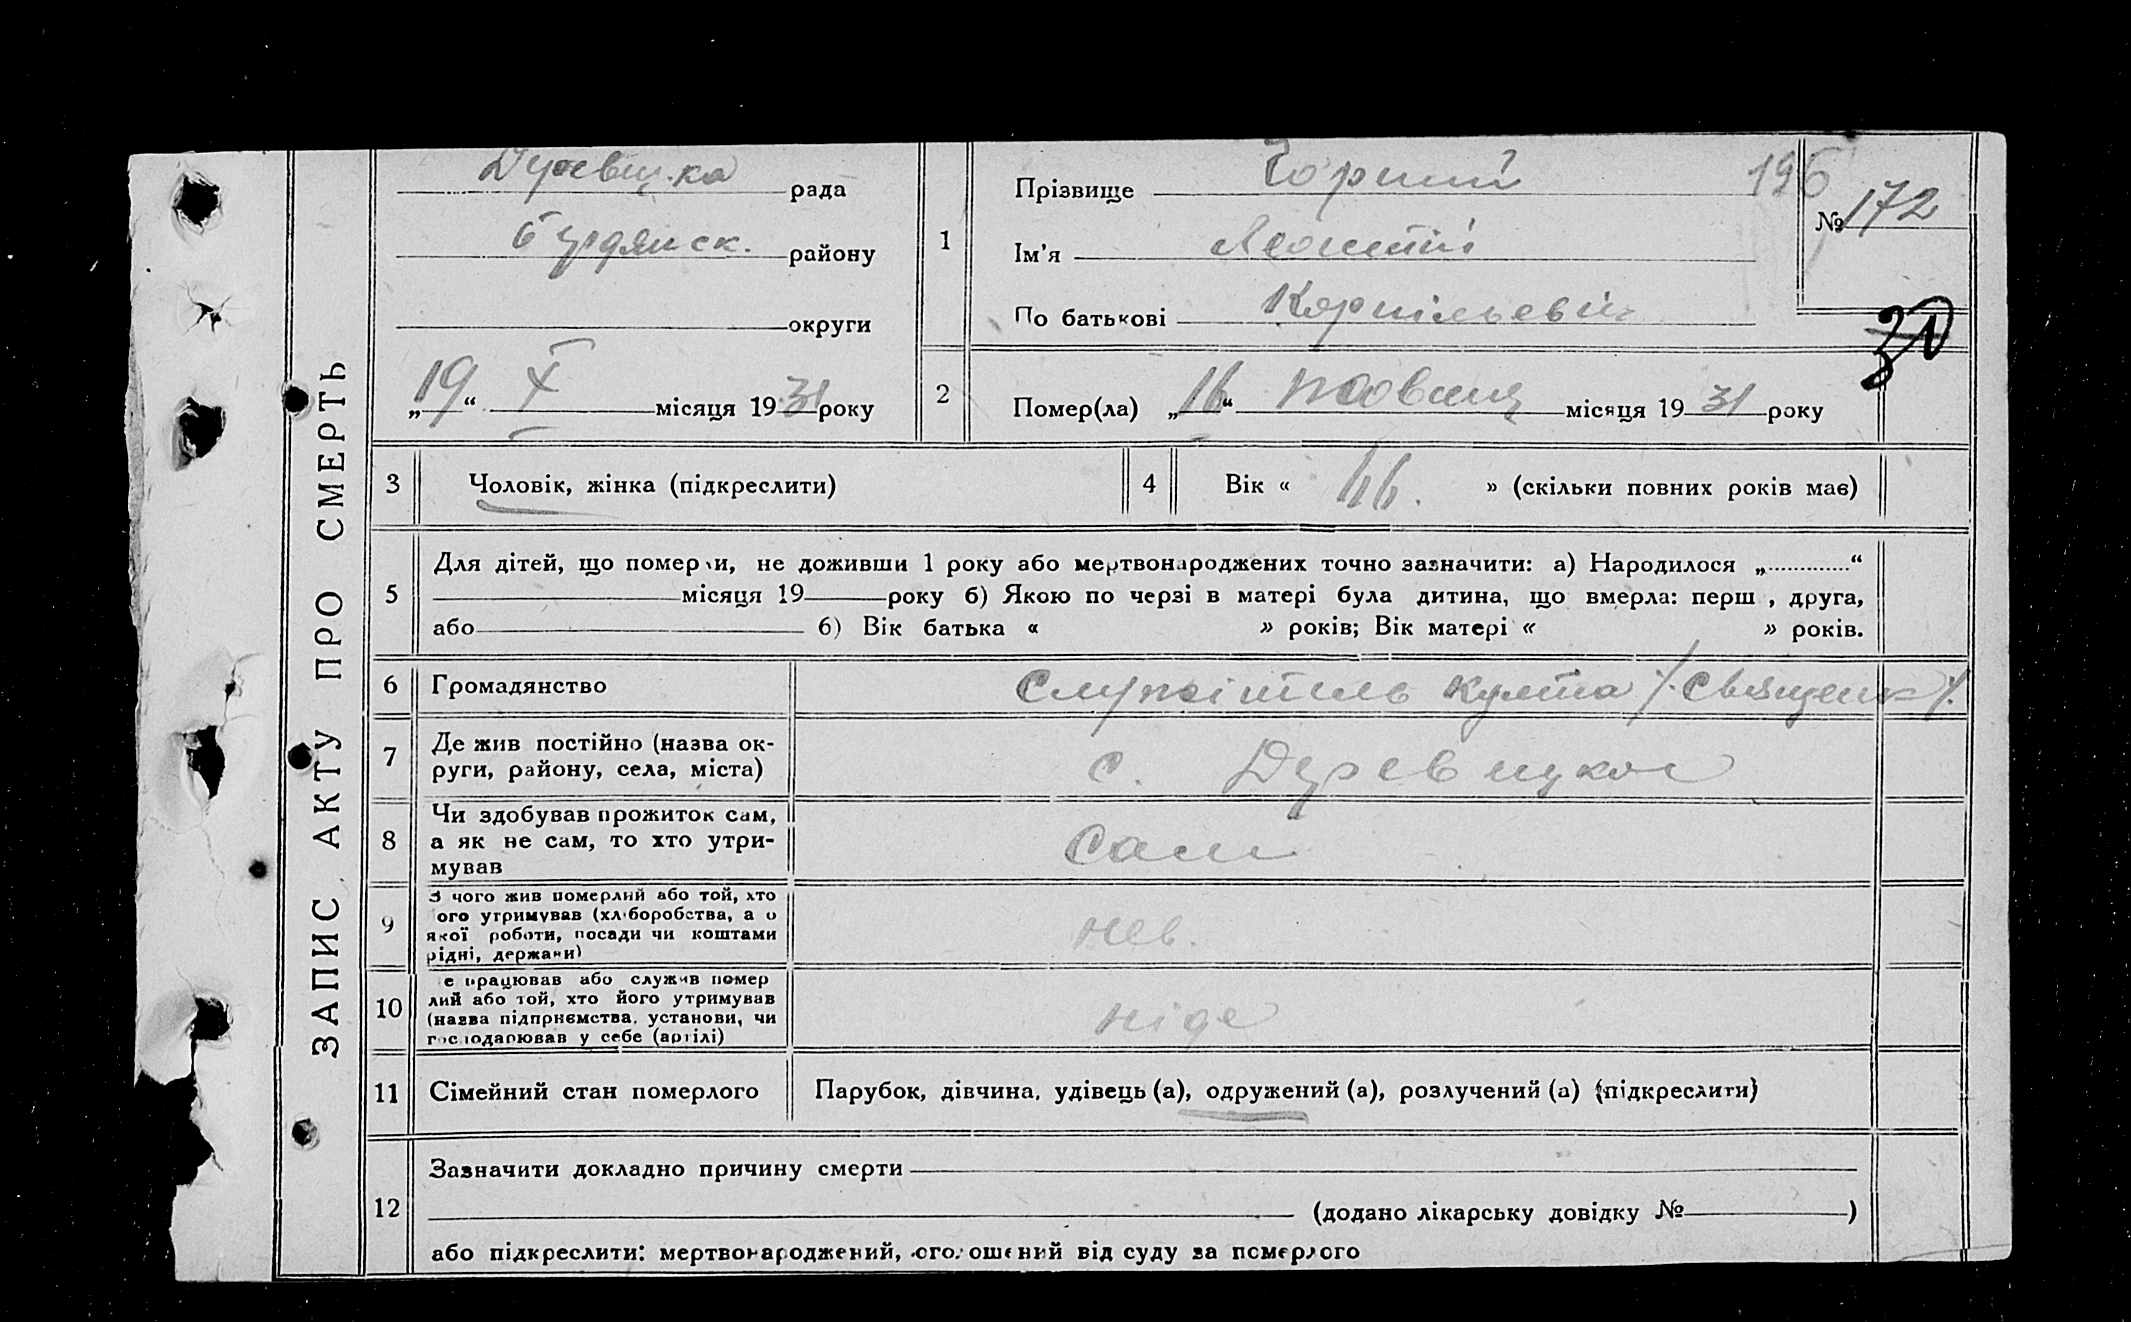 ЗАПИС АКТУ ПРО СМЕРТЬ
рада
району
округи
„19“ X місяця 1931 року
1
Прізвище Чорний
Ім'я Леонтій
По батькові
196
№ 172
2
Помер(ла) „16“ жовтня місяця 1931 року
3
Чоловік, жінка (підкреслити)
4
Вік « » (скільки повних років має)
5
Для дітей, що померли, не доживши 1 року або мертвонароджених точно зазначити: а) Народилося „ “
місяця 19 року б) Якою по черзі в матері була дитина, що вмерла: перш , друга,
або б) Вік батька « » років; Вік матері « » років.
6
Громадянство
Служітель культа /. Священ. /.
7
Де жив постійно (назва ок-
руги, району, села, міста)
с.
8
Чи здобував прожиток сам,
а як не сам, то хто утри-
мував
Сам
9
З чого жив померлий або той, хто
ого утримував (хліборобства, а о
якої роботи, посади чи коштами
рідні, держави)
нев.
10
е працював або служив помер
лий або той, хто його утримував
(назва підприємства, установи, чи
господарював у себе (артілі)
ніде
11
Сімейний стан померлого
Парубок, дівчина, удівець (а), одружений (а), розлучений (а) (підкреслити)
12
Зазначити докладно причину смерти
(додано лікарську довідку № )
або підкреслити: мертвонароджений, оголошений від суду за померлого